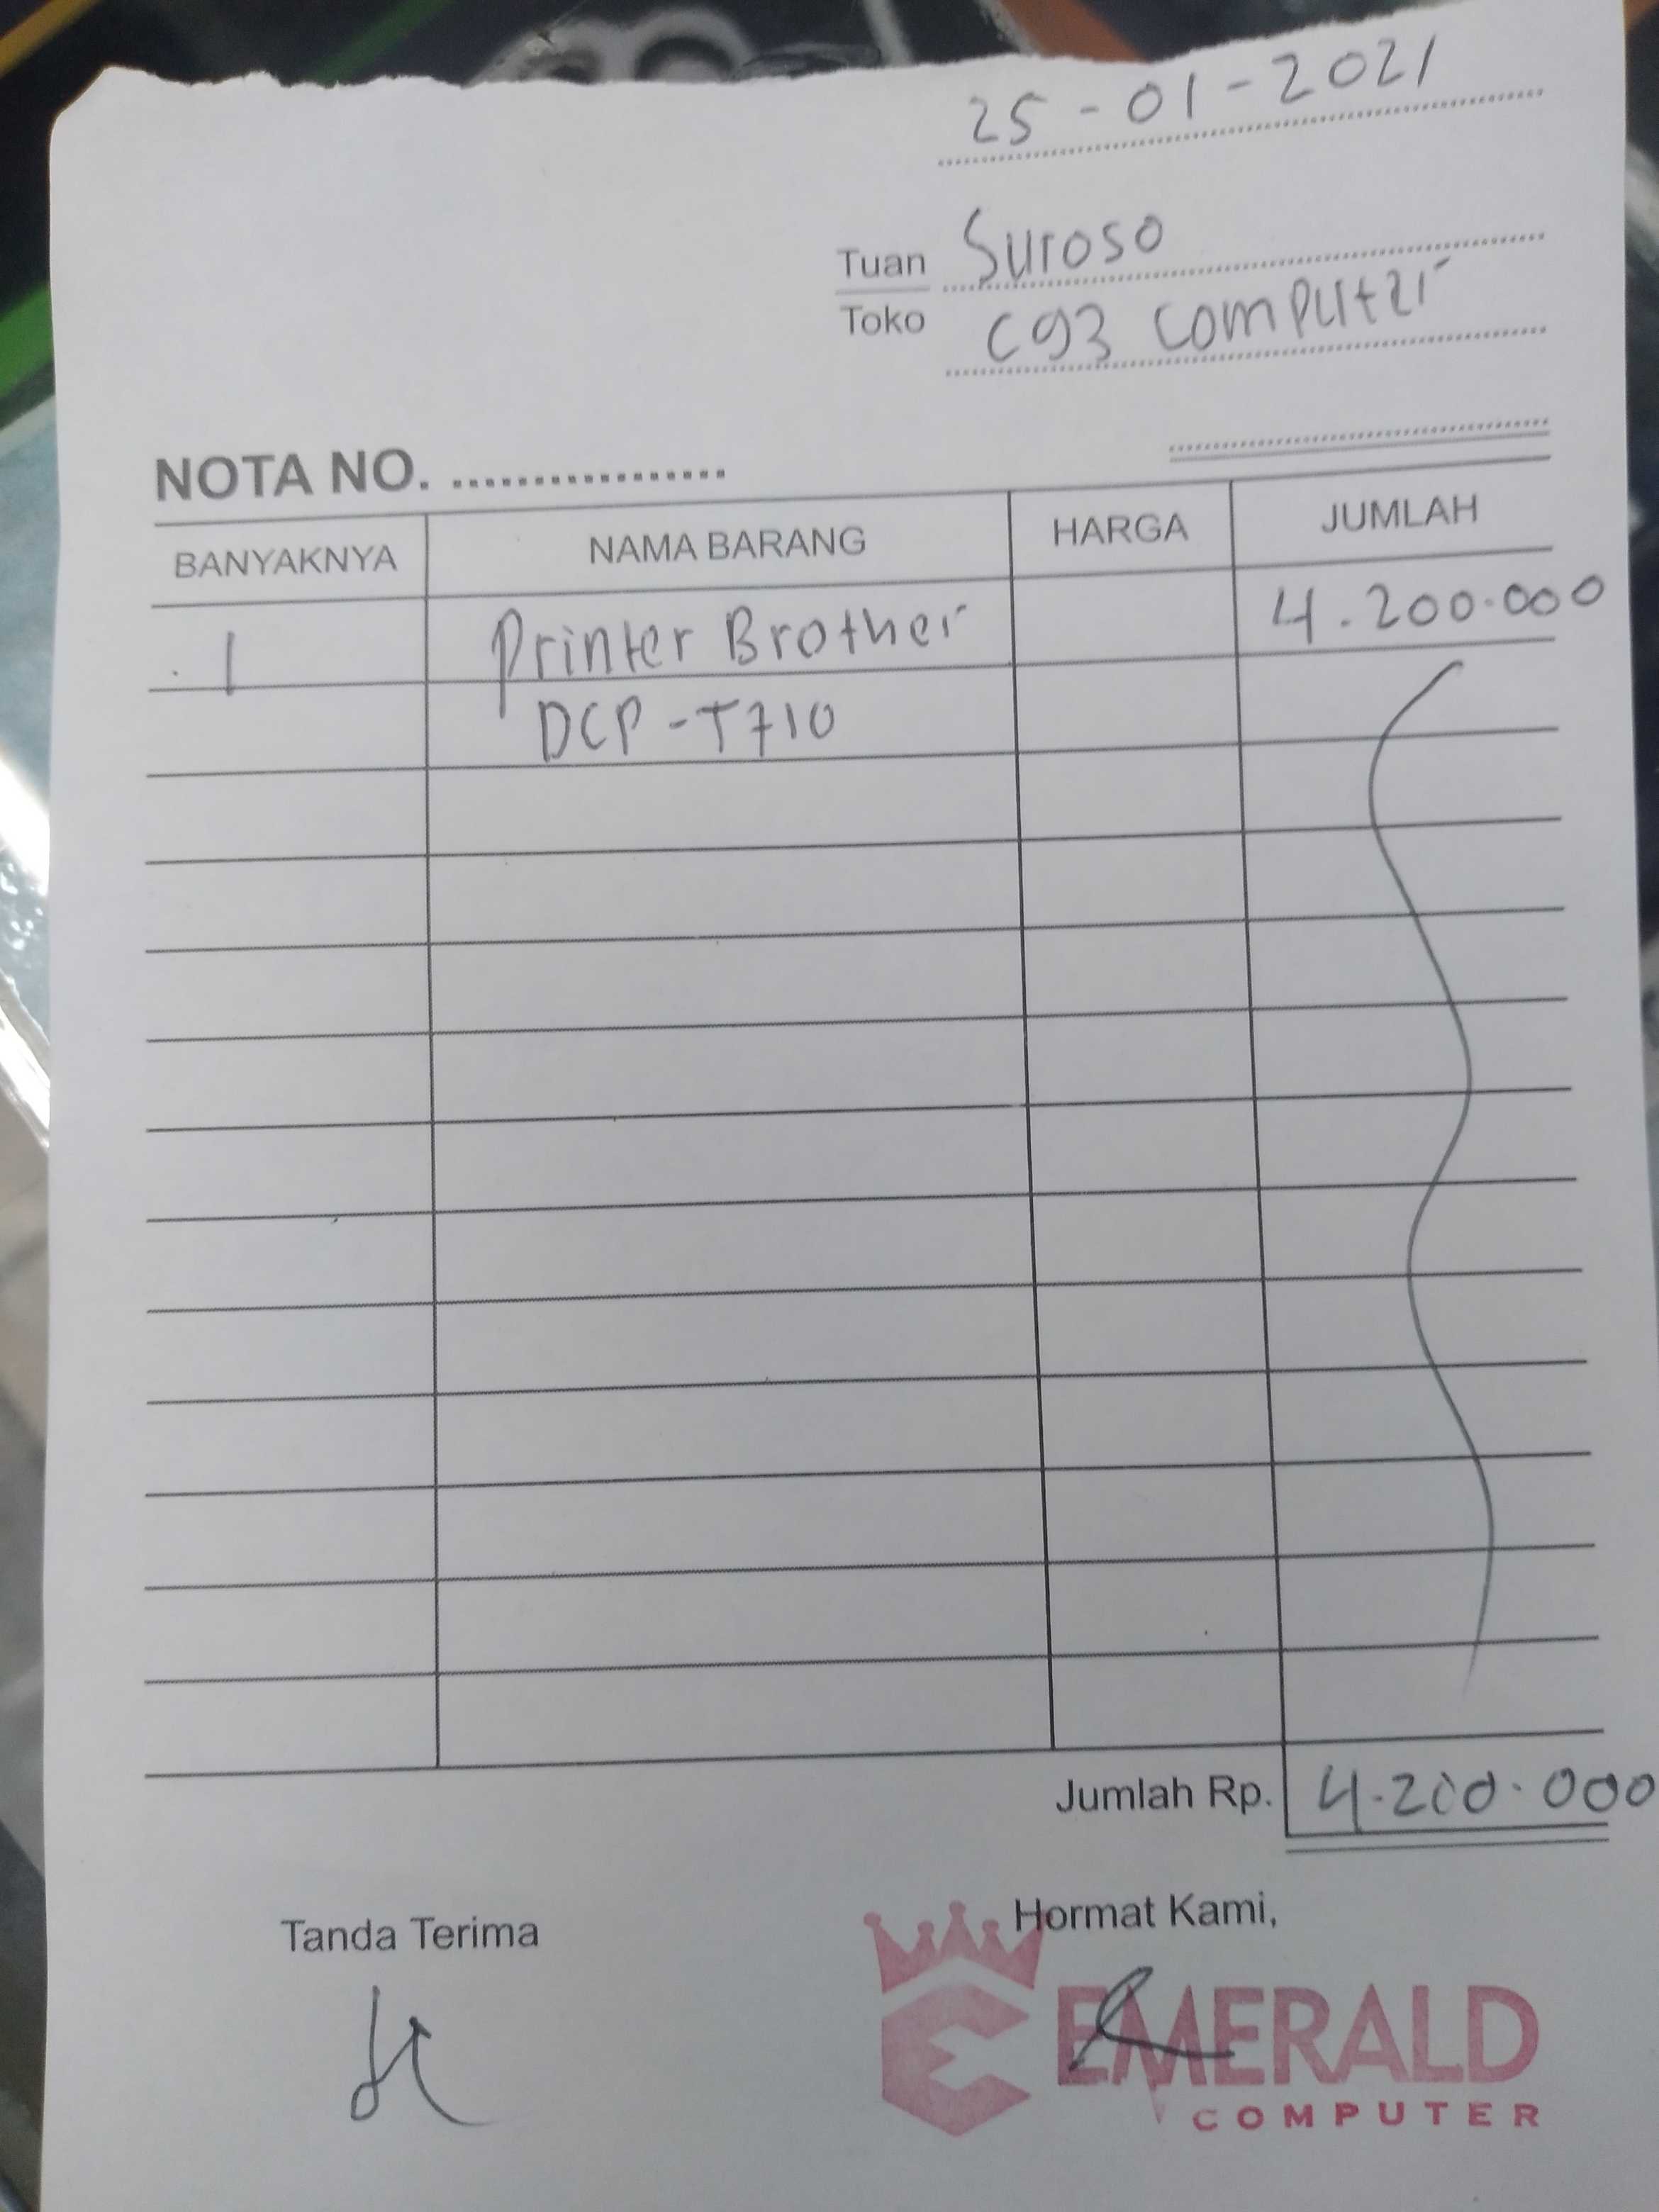 25-01-2021
Tuan Suroso
Toko C93 Computer
NOTA NO. .................
BANYAKNYA NAMA BARANG HARGA JUMLAH
1 Printer Brother 4.200.000
DCP-T710
Jumlah Rp. 4.200.000
Tanda Terima Hormat Kami,
EMERALD
COMPUTER